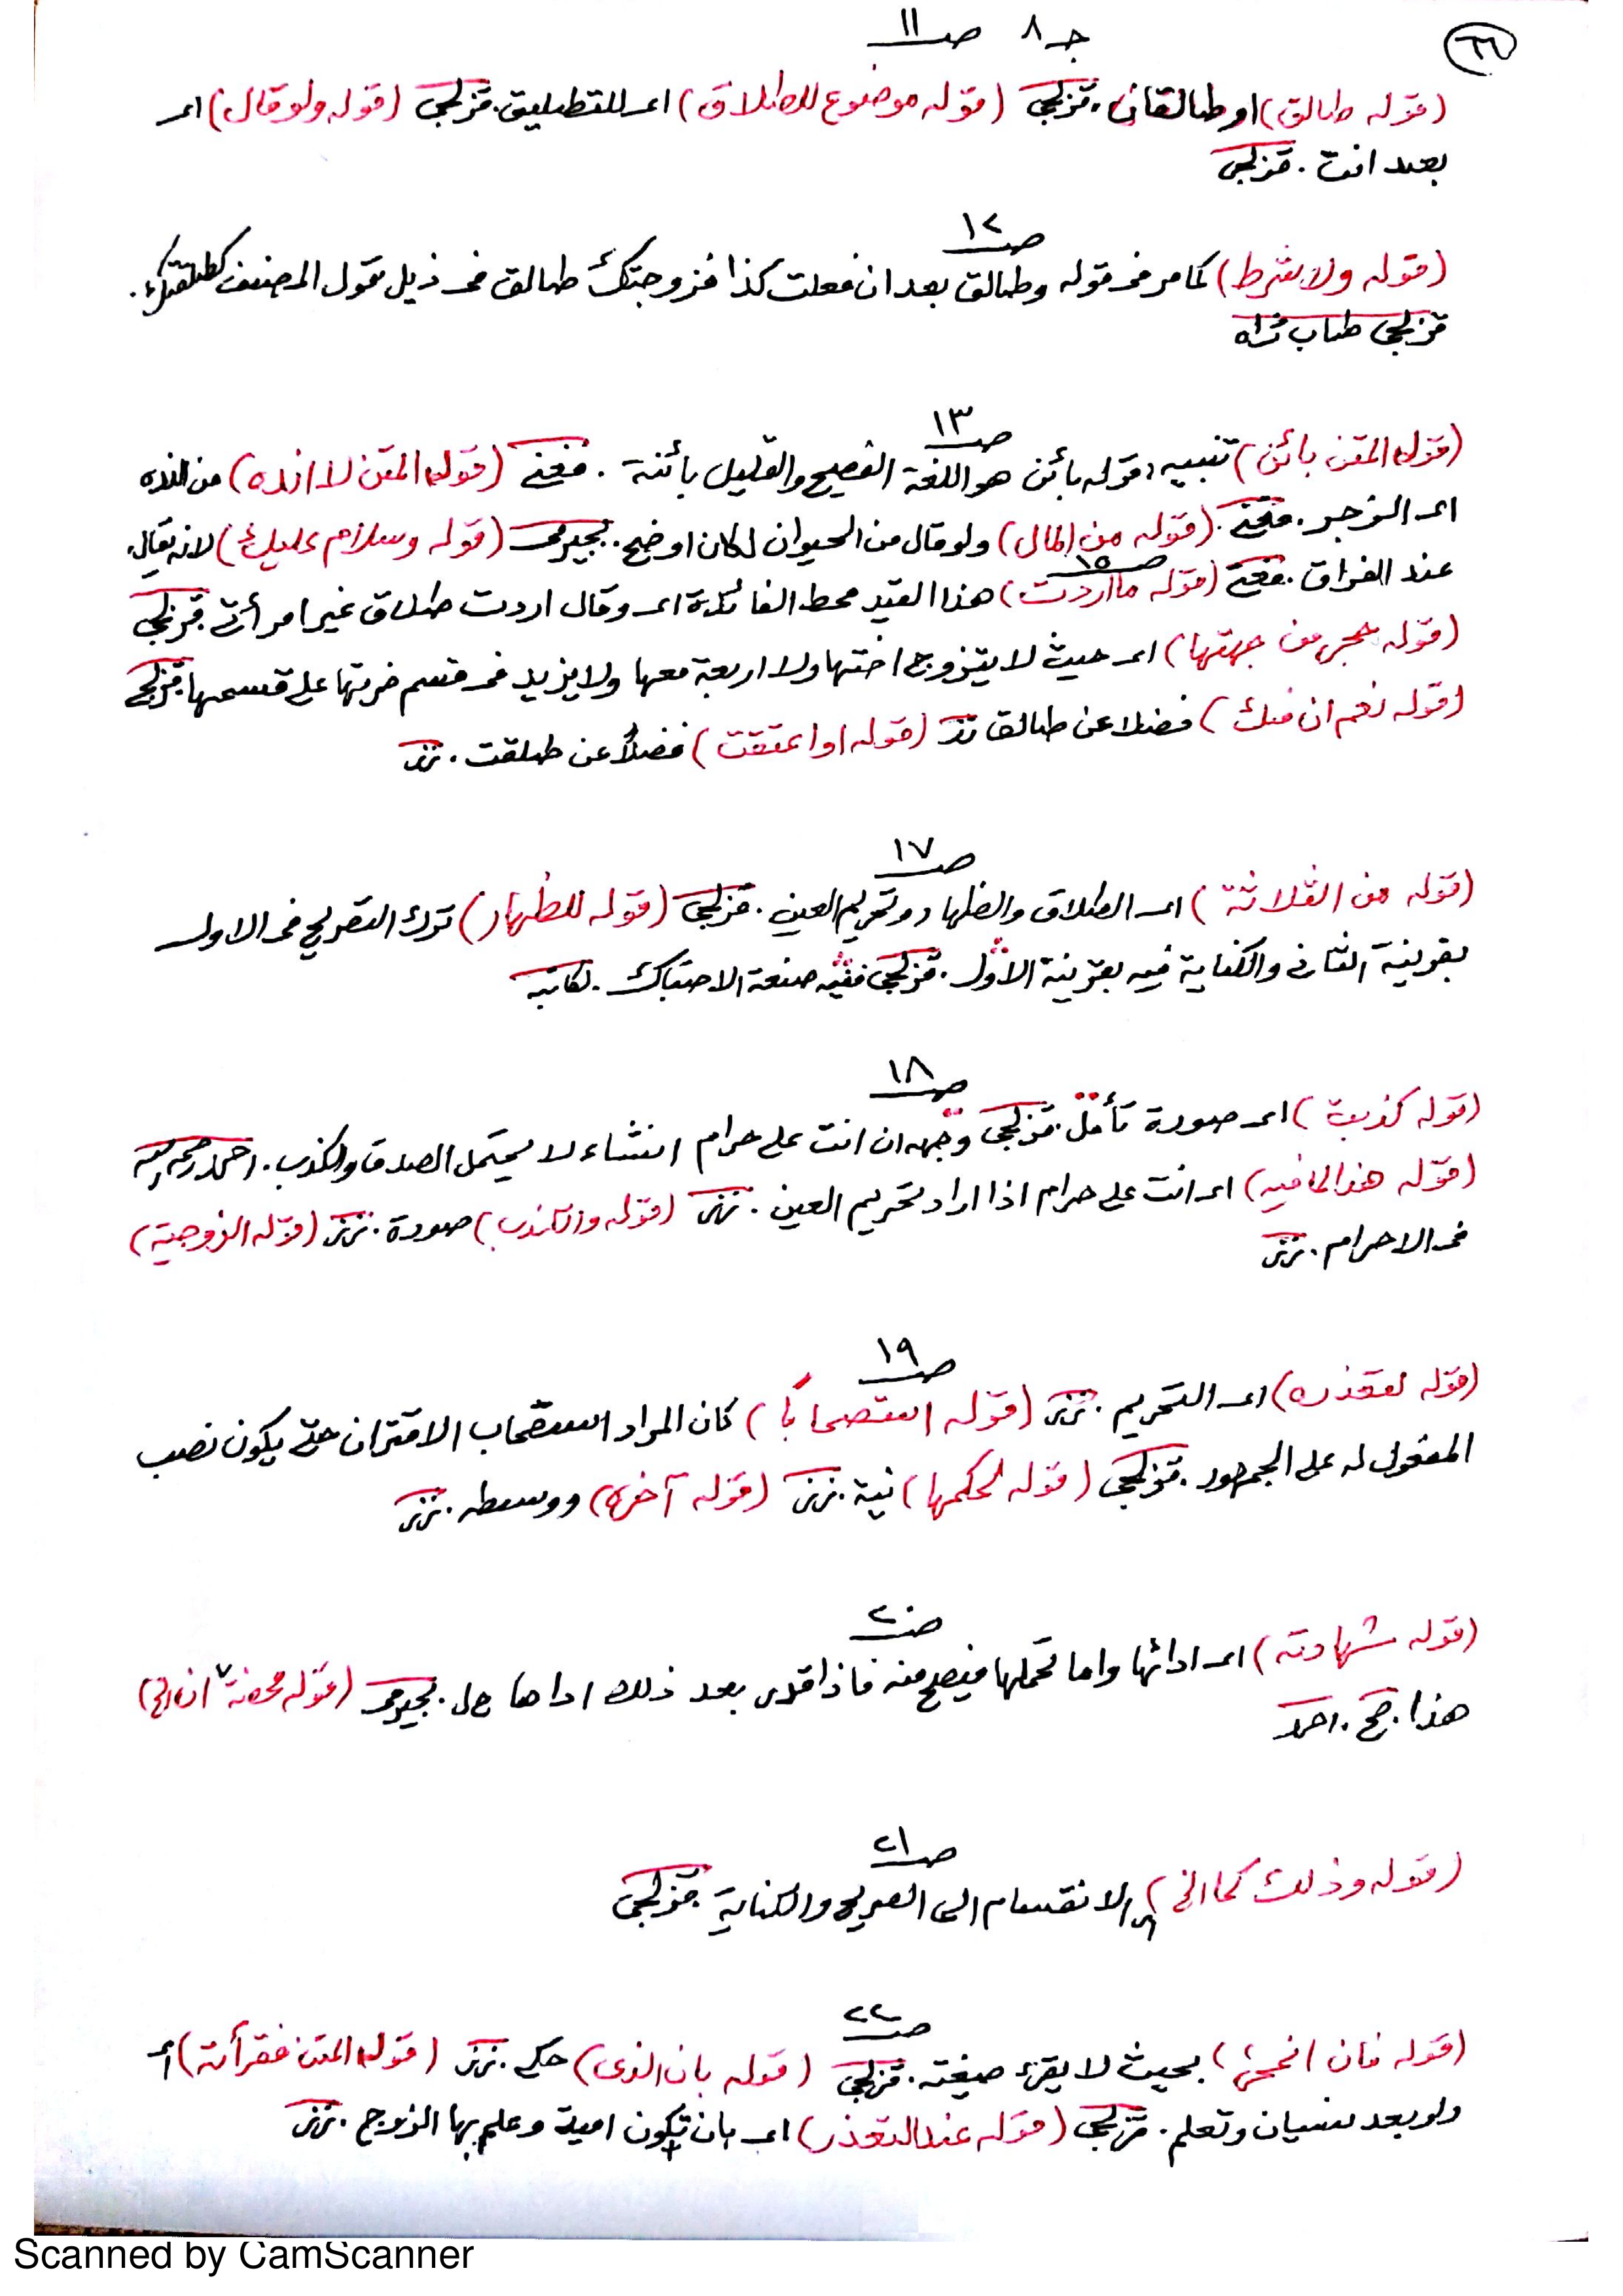 ٦٦
جـ ٨ صـ ١١
(قوله طالق) او طالقان. قزلجي (قوله موضوع للطلاق) اى للتطليق. قزلجي (قوله ولو قال) اى
بعد انت. قزلجي
صـ ١٢
(قوله ولا بشرط) كما مر فى قوله وطالق بعد ان فعلت كذا فزوجتك طالق فى ذيل قول المصنف كطلقتك.
قزلجي طاب ثراه
صـ ١٣
(قوله المتن بائن) تنبيه: قوله بائن هو اللغة الفصيح والقليل بائنة. مغني (قوله المتن لا انده) من النده
اى الزجر. مغني. (قوله من المال) ولو قال من الحيوان لكان اوضح. بجيرمى (قوله وسلام عليك) لانه يقال.
صـ ١٥
عند الفراق. مغني (قوله ما اردت) هذا القيد محط الفائدة اى وقال اردت طلاق غير امرأتي قزلجي
(قوله حجر من جهتها) اى حيث لا يتزوج اختها ولا اربعة معها ولا يزيد فى قسم ضرتها على قسمها. قزلجي
(قوله نعم ان منك) فضلا عن طالق نز (قوله او اعتقت) فضلاً عن طلقت. نز
صـ ١٧
(قوله من الثلاثة) اى الطلاق والظهار وتحريم العين. قزلجي (قوله للظهار) ترك التصريح فى الاول
بقرينة الثانى والكناية فيه بقرينة الاوّل. قزلجي ففيه صنعة الاحتباك. لكاتبه
صـ ١٨
(قوله كذبت) اى صورة تأمل. قزلجي وجهه ان انت على حرام انشاء لا يحتمل الصدق والكذب. احمد رحمه الله
(قوله هذا لا فيه) اى انت على حرام اذا اراد تحريم العين. نز (قوله والكذب) صورة. نز (قوله الزوجية)
فى الاحرام. نز
صـ ١٩
(قوله لتعذره) اى التحريم. نز (قوله استصحاباً) كان المراد استصحاب الاقتران حتى يكون نصب
المفعول له على الجمهور. قزلجي (قوله لحكمها) نية. نز (قوله آخره) ووسطه. نز
صـ ٢٠
(قوله شهادته) اى ادائها واما تحملها فيصح منه فاذا قدر بعد ذلك اداها حل. بجيرمى (قوله محضة ان الخ)
هذا. صح. احمد
صـ ٢١
(قوله وذلك كما الخ) اى الانقسام الى الصريح والكناية. قزلجي
صـ ٢٢
(قوله فان انمحى) بحيث لا يقرء صيغته. قزلجي (قوله بان الذى) حكى. نز (قوله المتن فقرأته) اى
ولو بعد نسيان وتعلم. قزلجي (قوله عند التعذر) اى بان تكون امية وعلم بها الزوج. نز
Scanned by CamScanner